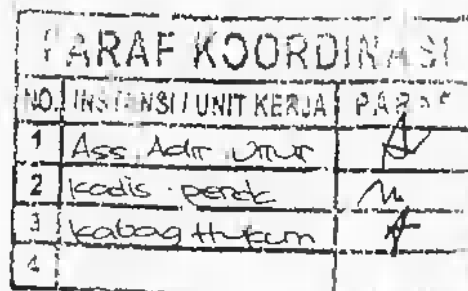 PARAF KOORDINASI
NO. INSTANSI / UNIT KERJA PARAF
1 Ass. Adm. Umum
2 Kadis. perdc
3 Kabag Hukum
4